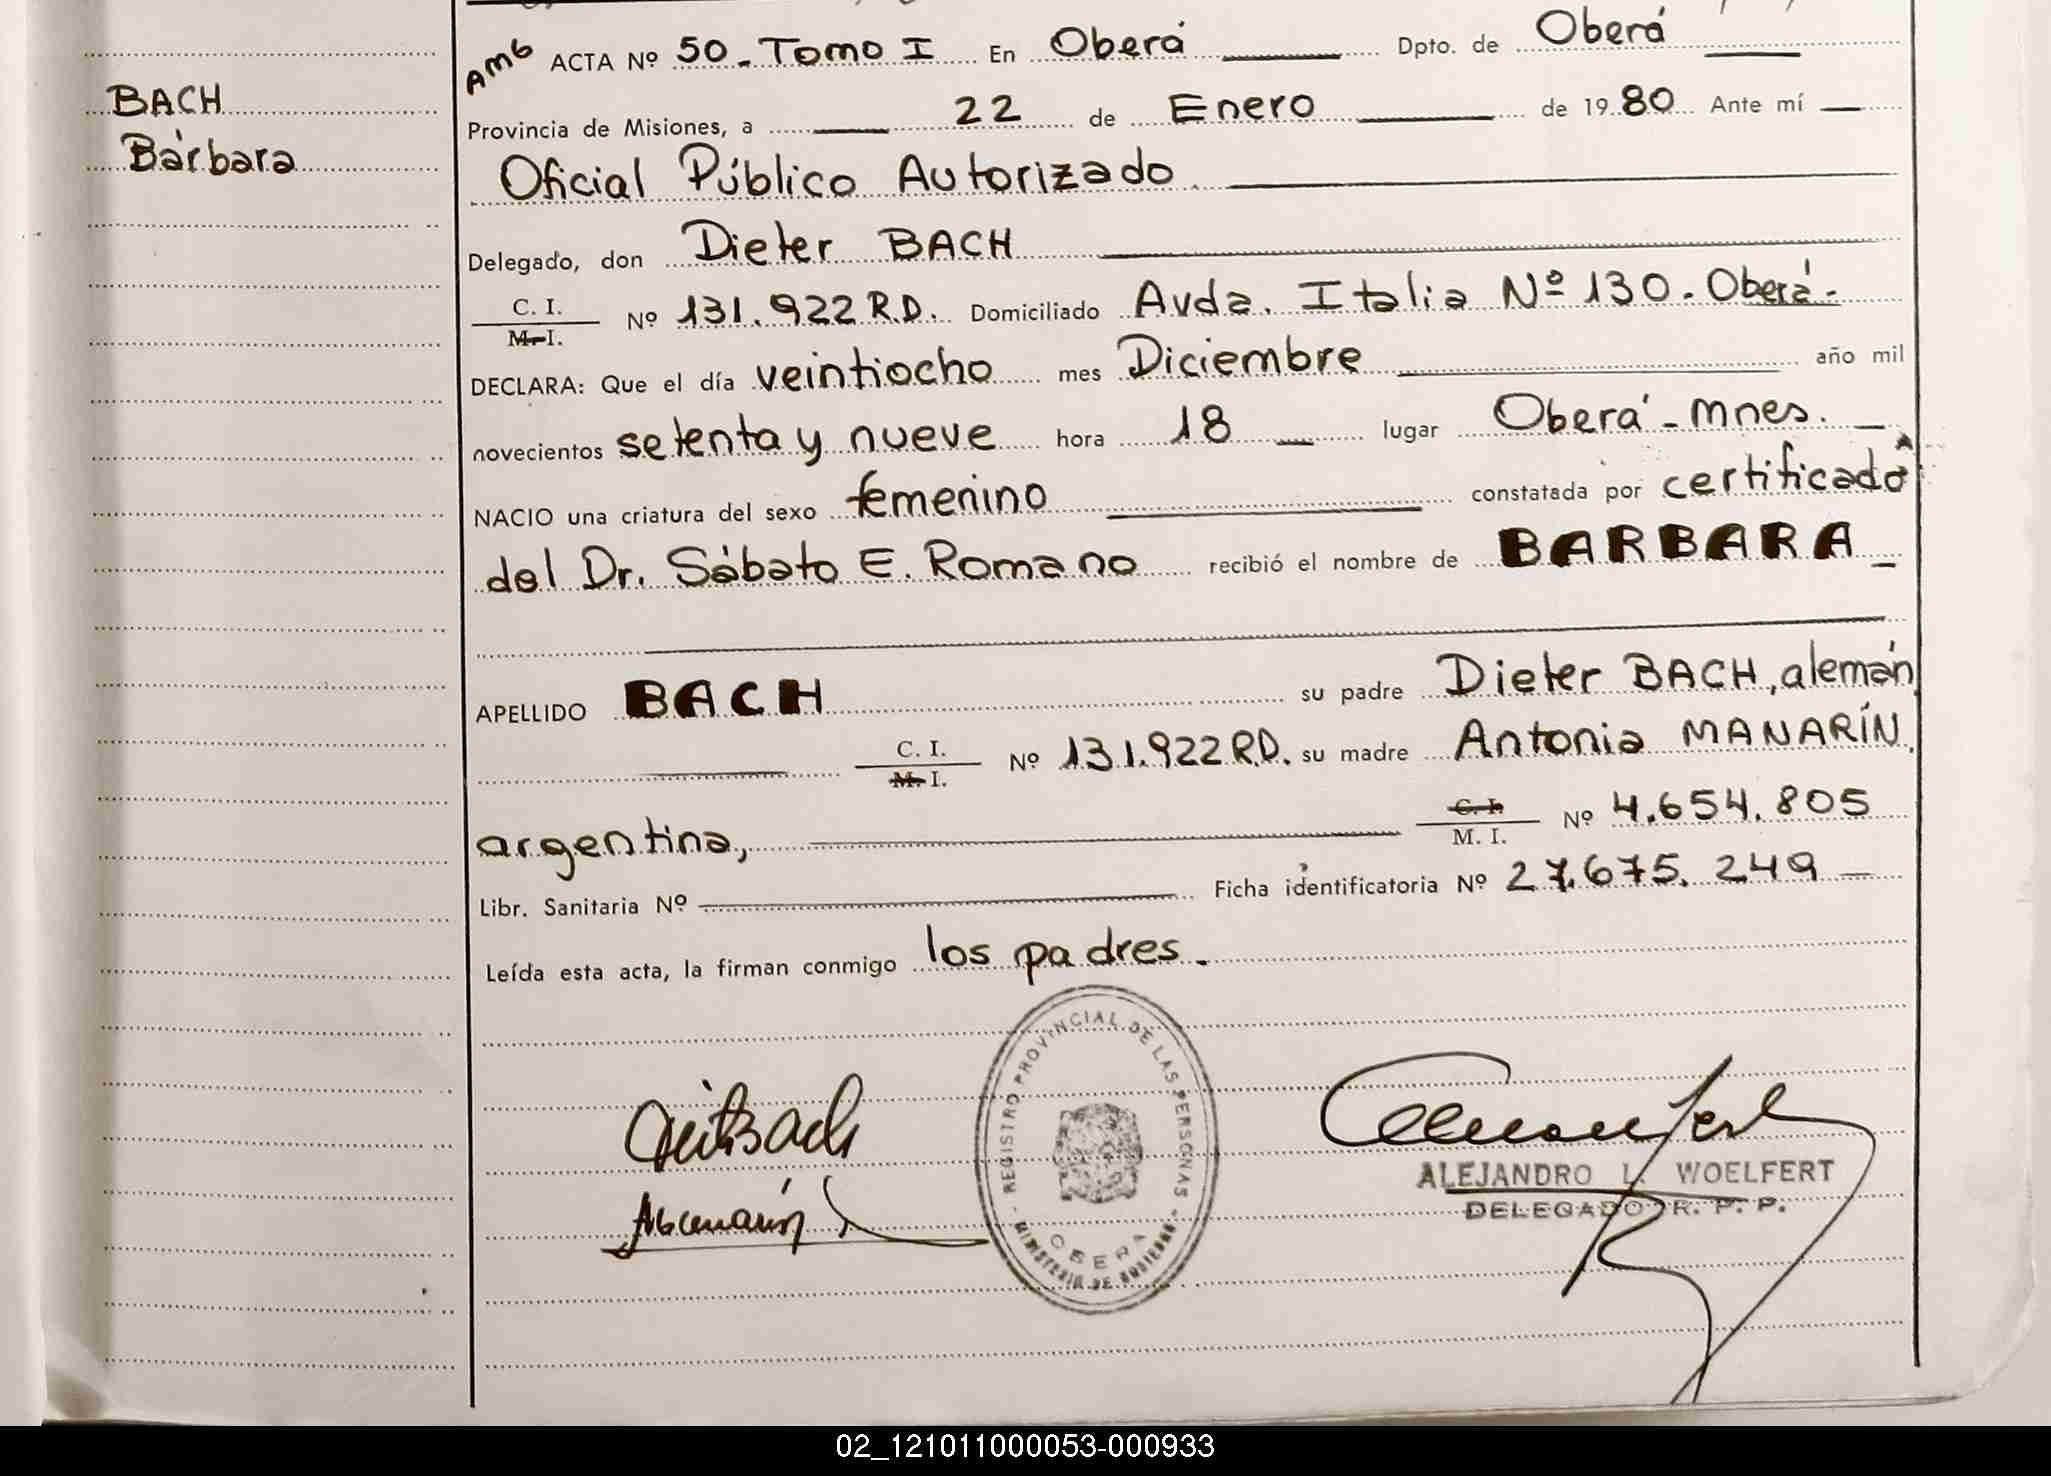 BACH
Bárbara
Amb ACTA Nº 50 - Tomo I En Oberá Dpto. de Oberá
Provincia de Misiones, a 22 de Enero de 1980 Ante mí
Oficial Público Autorizado
Delegado, don Dieter BACH
C. I. / M. I. Nº 131.922 R.D. Domiciliado Avda. Italia Nº 130. Oberá.
DECLARA: Que el día veintiocho mes Diciembre año mil
novecientos setenta y nueve hora 18 lugar Oberá - Mnes.
NACIO una criatura del sexo femenino constatada por certificado
del Dr. Sábato E. Romano recibió el nombre de BARBARA
APELLIDO BACH su padre Dieter BACH, alemán
C. I. / M. I. Nº 131.922 R.D. su madre Antonia MANARÍN,
argentina, C. I. / M. I. Nº 4.654.805
Libr. Sanitaria Nº Ficha identificatoria Nº 27.675.249
Leída esta acta, la firman conmigo los padres.
REGISTRO PROVINCIAL DE LAS PERSONAS
OBERA
MINISTERIO DE GOBIERNO
ALEJANDRO L. WOELFERT
DELEGADO R. P. P.
02_121011000053-000933